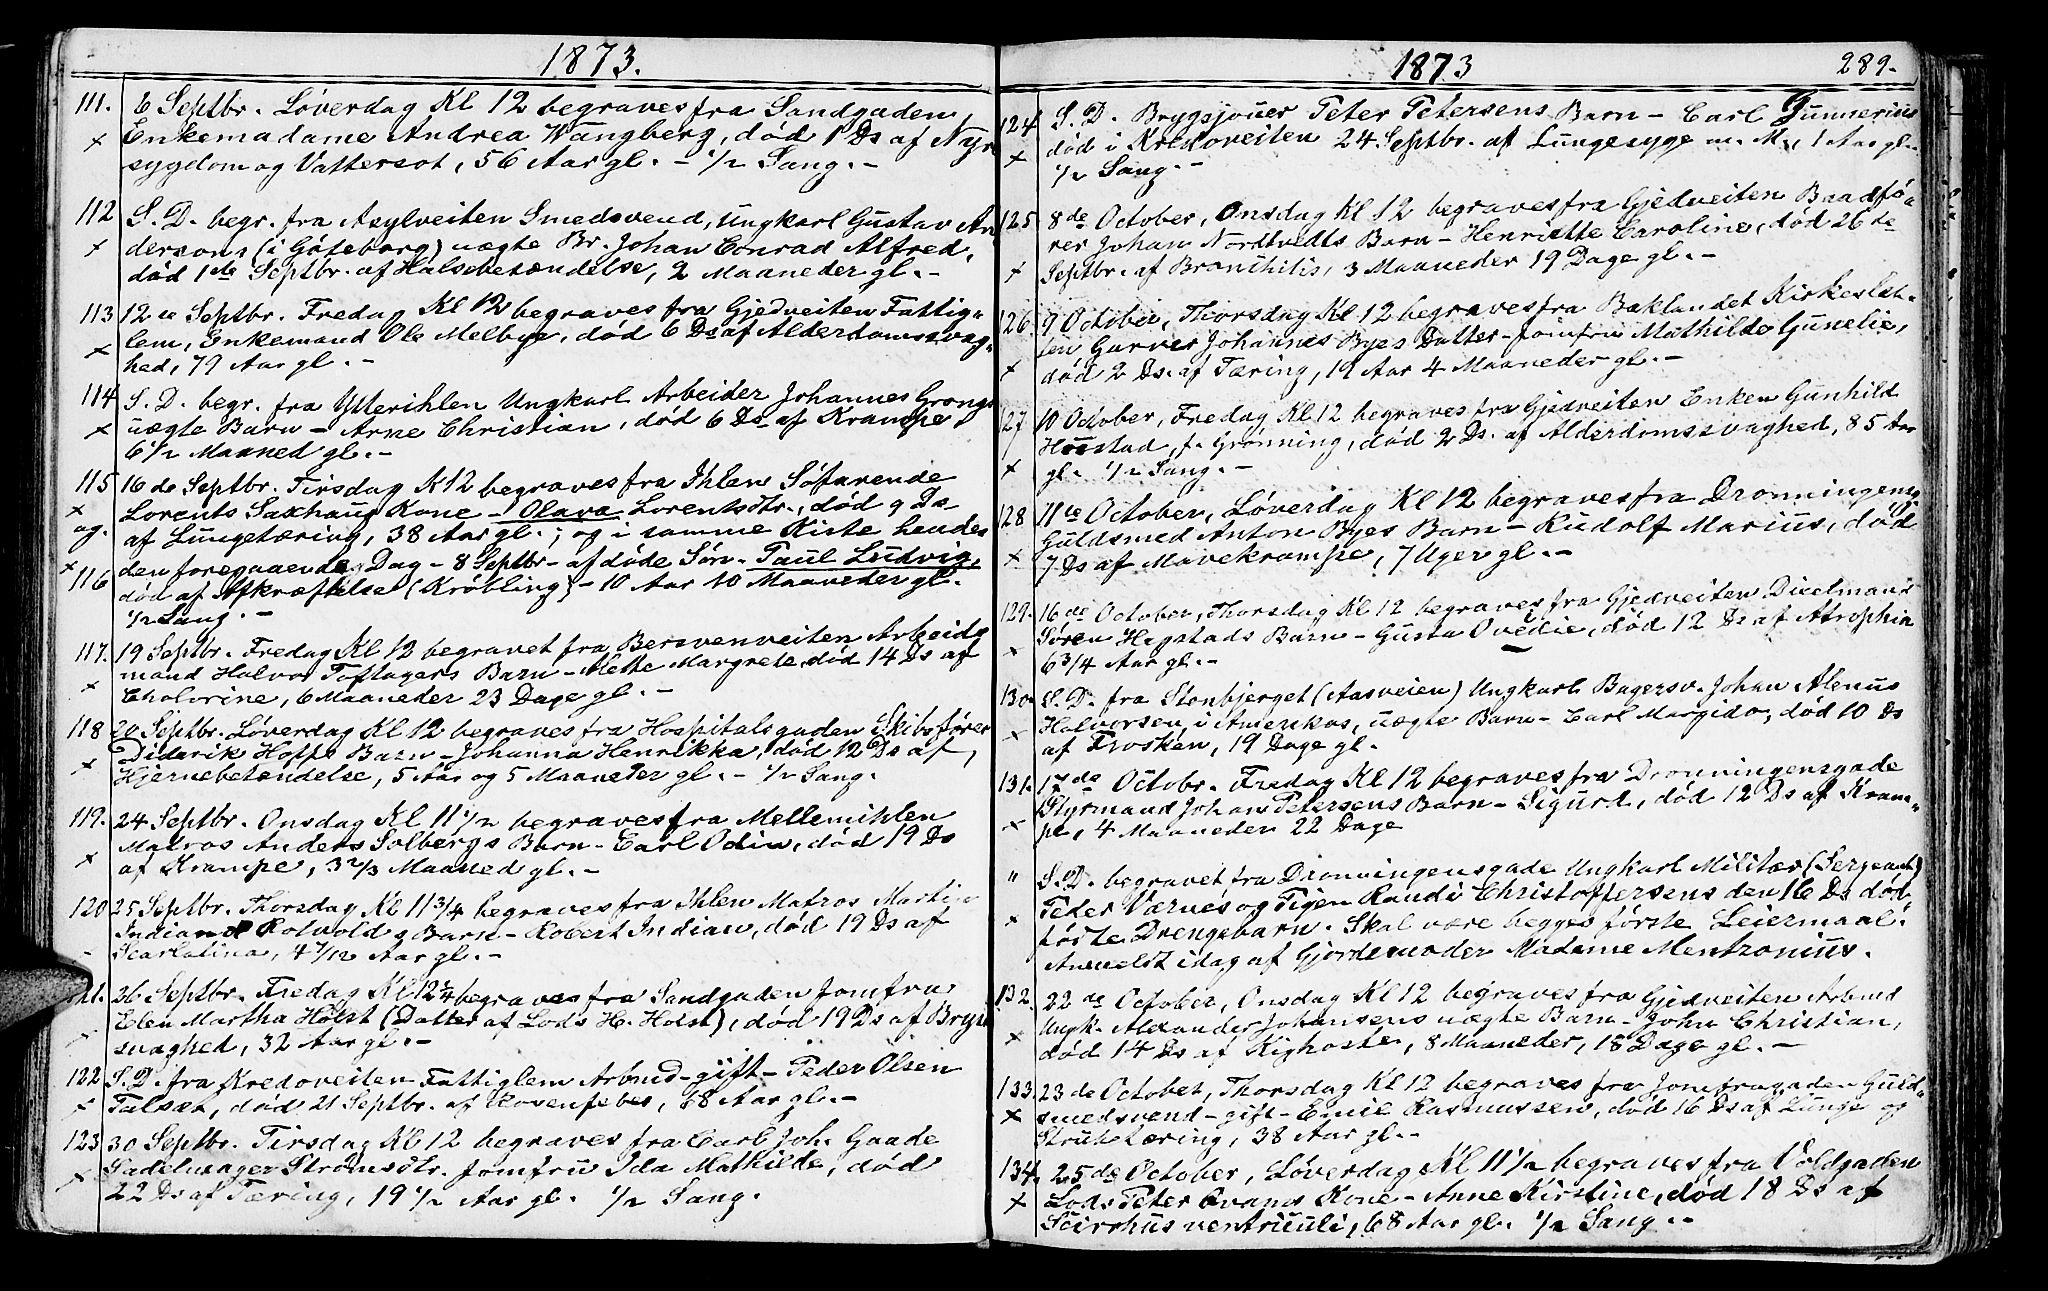 1873.
111. 6 Septbr. Løverdag Kl 12 begraves fra Sandgaden,
Enkemadame Andrea Wangberg, død 1 Ds af Nyr
sygdom og Vattersot, 56 Aar gl. - 1/2 Sang. -
112 S. D. begr. fra Asylveiten Smedsvend, Ungkarl Gustav An
dersons (i Göteborg) uægte Br. Johan Conrad Alfred,
død 1ste Septbr. af Halsebetændelse, 2 Maaneder gl. -
113 12te Septbr. Fredag Kl 12 begraves fra Gjedveiten Fattig-
lem, Enkemand Ole Melbye, død 6 Ds af Alderdomssvag-
hed, 79 Aar gl. -
114 S. D. begr. fra Ytterihlen Ungkarl Arbeider Johannes Grongs
uægte Barn - Arne Christian, død 6 Ds af Krampe,
6 1/2 Maaned gl. -
115 16de Septbr. Tirsdag Kl 12 begraves fra Ihlen Søfarende
Lorents Saxhaug Kone - Olava Lorentsdtr., død 9 Ds
og af Lungetæring, 38 Aar gl.; og i samme Kiste hendes
den foregaaende Dag - 8 Septbr - afdøde Søn - Paul Ludvig,
116 død af Afkræftelse (Krøbling) - 10 Aar 10 Maaneder gl.
1/2 Sang. -
117. 19 Septbr. Fredag Kl 12 begravet fra Bersvenveiten Arbeids
mand Halvor Toftagers Barn - Mette Margrete, død 14 Ds af
Cholorine, 6 Maaneder 23 Dage gl. -
118 20 Septbr. Løverdag Kl 12 begraves fra Hospitalsgaden Skibsfører
Diderik Hoffs Barn - Johanna Henrikka, død 12 Ds af
Hjernebetændelse, 5 Aar og 5 Maaneder gl. - 1/2 Sang.
119. 24 Septbr. Onsdag Kl 11 1/2 begraves fra Mellemihlen
Matros Anders Solbergs Barn - Carl Odin, død 19 Ds
af Krampe, 3 2/3 Maaned gl. -
120 25 Septbr. Thorsdag Kl 11 3/4 begraves fra Ihlen Matros Martin
Indian Rotvolds Barn - Robert Indian, død 19 Ds af
Scarlatina, 4 7/12 Aar gl. -
121. 26 Septbr. Fredag Kl 12 1/4 begraves fra Sandgaden Jomfru
Elen Martha Holst (Datter af Lods H. Holst), død 19 Ds af Bryst
svaghed, 32 Aar gl. -
122 S. D. fra Kredoveiten Fattiglem Arbmd - gift - Peder Olsen
død 21 Septbr. af 68 Aar gl. -
123 30 Septbr. Tirsdag Kl 12 begraves fra Carl Joh. Gaade
Sadelmager Strømsdtr. Jomfru Ida Mathilde, død
22 Ds af Tæring, 19 1/2 Aar gl. 1/2 Sang.
1873 289.
124 S. D. Brygsjouer Peter Petersens Barn - Carl Gunnerius
død i Kredoveiten 24 Septbr. af Lungesyge m. M., 1 Aar gl.
1/2 Sang. -
125. 8de October, Onsdag Kl 12 begraves fra Gjedveiten Baadfø-
rer Johan Nordtvedts Barn - Henriette Caroline, død 26de
Septbr. af Bronchitis, 3 Maaneder 19 Dage gl. -
126. 9 October, Thorsdag Kl 12 begraves fra Baklandet Kirkeslet-
ten Garver Johannes Byes Datter - Jomfru Mathilde Gunelie,
død 2 Ds. af Tæring, 19 Aar 4 Maaneder gl. -
127 10 October, Fredag Kl 12 begraves fra Gjedveiten Enken Gunhild
Hustad, f. Grønning, død 2 Ds. af Alderdomssvaghed, 85 Aar
gl. 1/2 Sang. -
128 11te October, Løverdag Kl 12 begraves fra Dronningensg.
Guldsmed Anton Byes Barn - Rudolf Marius, død
7 Ds af Mavekrampe, 7 Uger gl. -
129. 16de October, Thorsdag Kl 12 begraves fra Gjedveiten
Søren Hegstads Barn - Gusta Ovedie, død 12 Ds af Atrophia
6 3/4 Aar gl. -
130. S. D. fra Stenbjerget (Aasveien) Ungkarl Bagersv. Johan Alenus
Halvorsen, i Amerikas, uægte Barn - Carl Margido, død 10 Ds
af Frosken, 19 Dage gl.
131. 17de Octobr. Fredag Kl 12 begraves fra Dronningensgade
Styrmand Johan Petersens Barn - Sigurd, død 12 Ds af Kram-
pe, 4 Maaneder 22 Dage
" S. D. begravet fra Dronningensgade Ungkarl Militær (Sergeant)
Peter Varnes og Pigen Randi Christoffersens den 16 Ds død-
fødte Drengebarn. Skal være begges første Leiermaal.
Anmeldt idag af Gjordemoder Madame Mentzonius.
132. 22de October, Onsdag Kl 12 begraves fra Gjedveiten Arbmd
Ungk. Alexander Johansens uægte Barn - John Christian,
død 14 Ds af Kighoste, 8 Maaneder, 18 Dage gl. -
133. 23de October, Thorsdag Kl 12 begraves fra Jomfrugaden Guld-
smedsvend - gift - Emil Rasmussen, død 16 Ds af Lunge og
Strubetæring, 38 Aar gl. -
134. 25de October, Løverdag Kl 11 1/2 begraves fra Voldgaden
Lods Peter Evans Kone - Anne Kirstine, død 18 Ds af
Scirrhus ventriculi, 68 Aar gl. 1/2 Sang. -